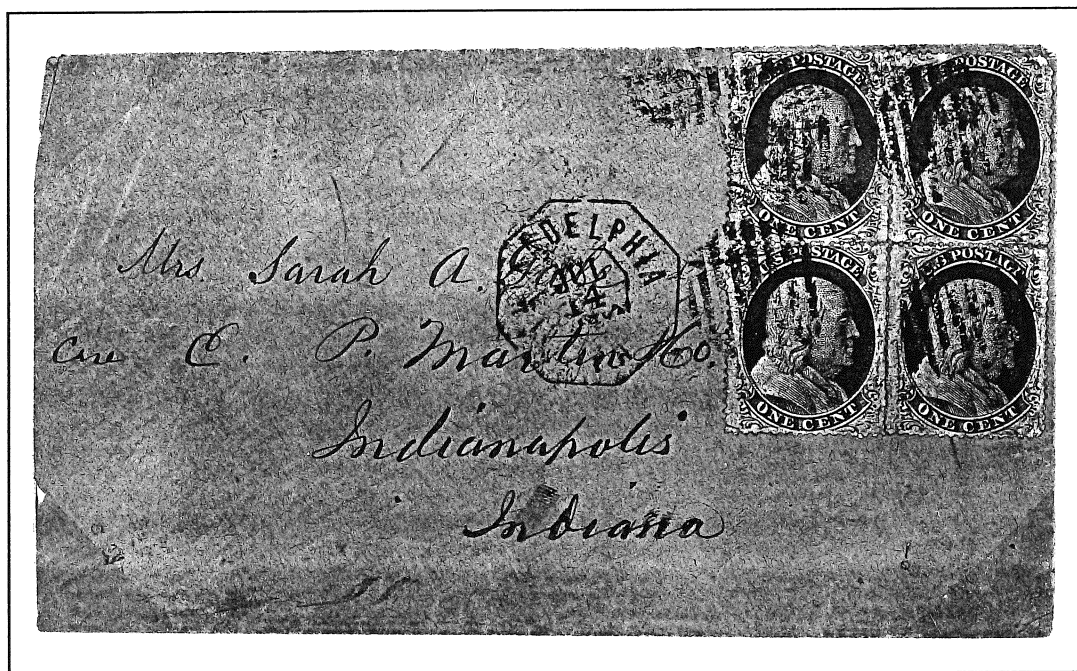 U.S. POSTAGE
ONE CENT
U.S. POSTAGE
ONE CENT
U.S. POSTAGE
ONE CENT
U.S. POSTAGE
ONE CENT
PHILADELPHIA
14
Mrs Sarah A.
Care C. P. Martin & Co.
Indianapolis
Indiana